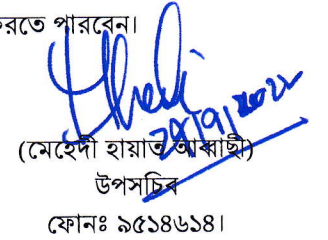 করতে পারবেন।
(মেহেদী হায়াত আব্বাছী)
উপসচিব
ফোনঃ ৯৫১৪৬১৪।